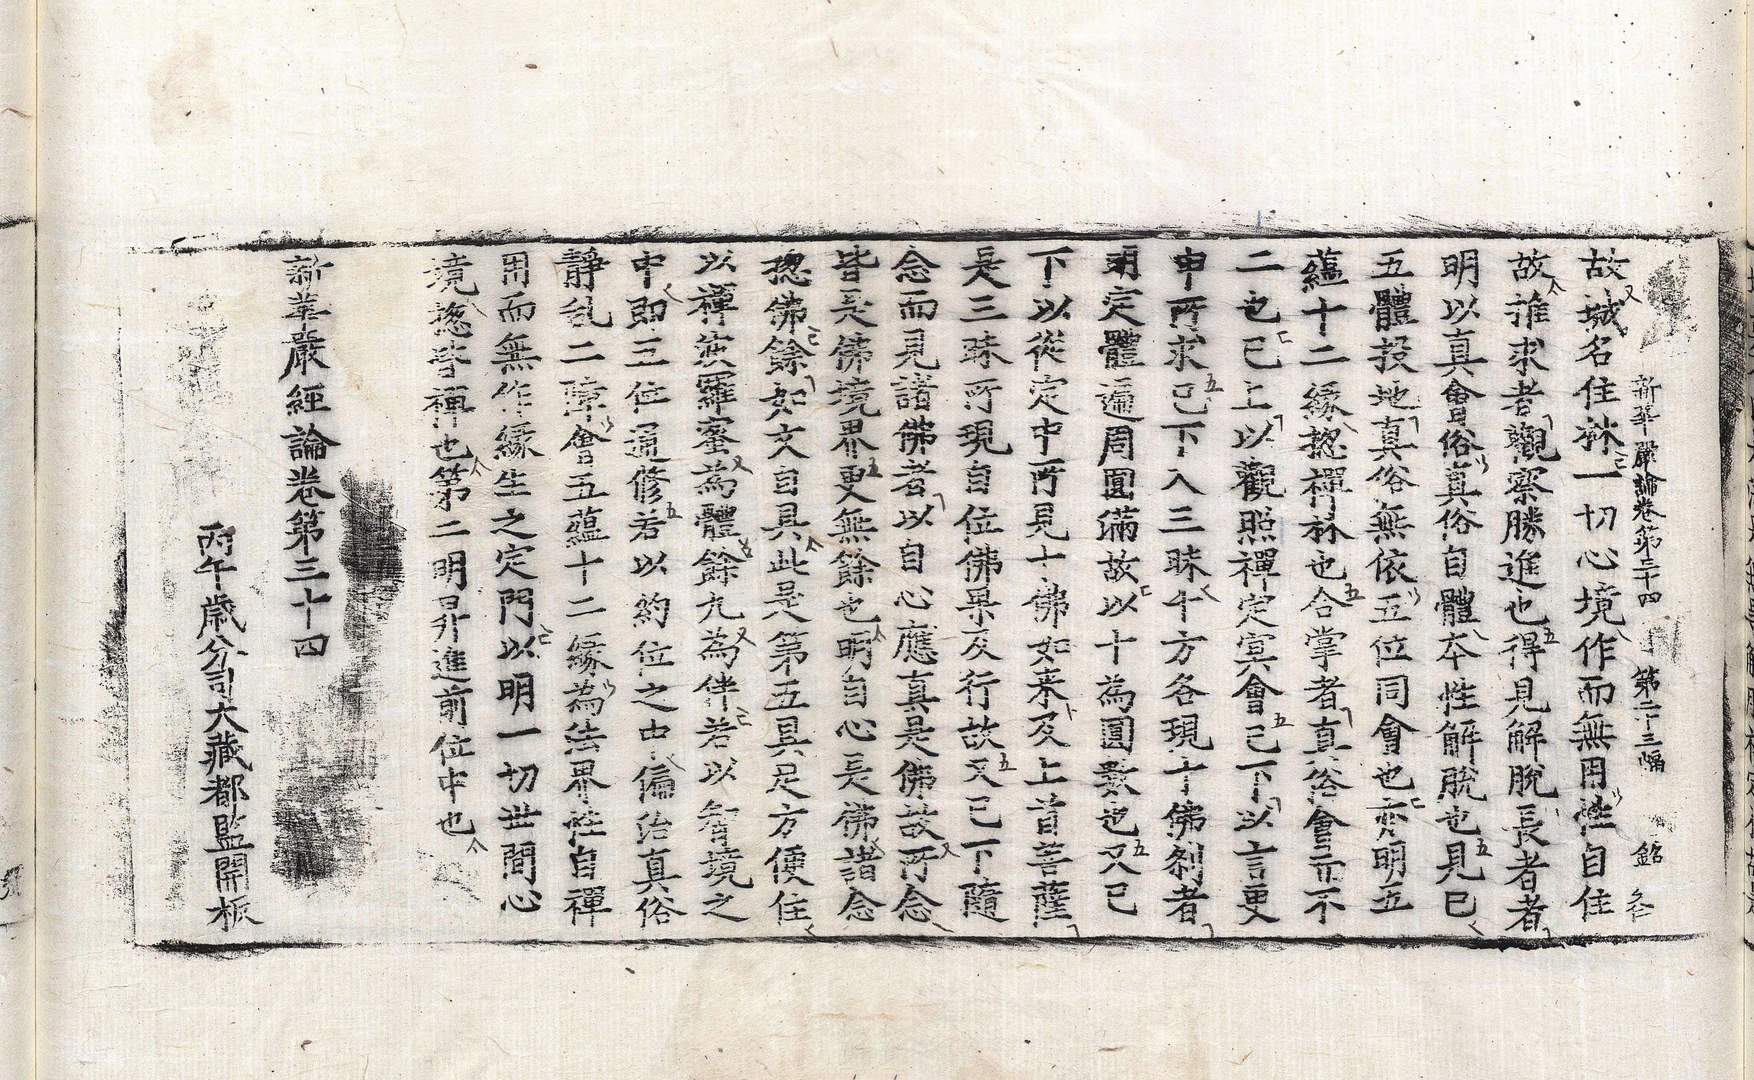 新華嚴論卷第三十四 第二十三幅 銘 各
故城名住林一切心境作而無用性自住
故推求者觀察勝進也得見解脫長者者
明以真會俗真俗自體本性解脫也見已
五體投地真俗無依五位同會也亦明五
蘊十二緣揔禪林也合掌者真俗會而不
二也已上以觀照禪定冥會已下以言更
申所求已下入三昧十方各現十佛刹者
明定體遍周圓滿故以十為圓數也又已
下以從定中所見十佛如来及上首菩薩
是三昧所現自位佛果及行故又已下隨
念而見諸佛者以自心應真是佛故所念
皆是佛境界更無餘也明自心是佛諸念
揔佛餘如文自具此是第五具足方便住
以禪波羅蜜為體餘九為伴若以智境之
中即五位通修若以約位之中偏治真俗
靜乱二障會五蘊十二緣為法界性自禪
用而無作緣生之定門以明一切世間心
境揔皆禪也第二明昇進前位中也
新華嚴經論卷第三十四
丙午歲分司大藏都監開板